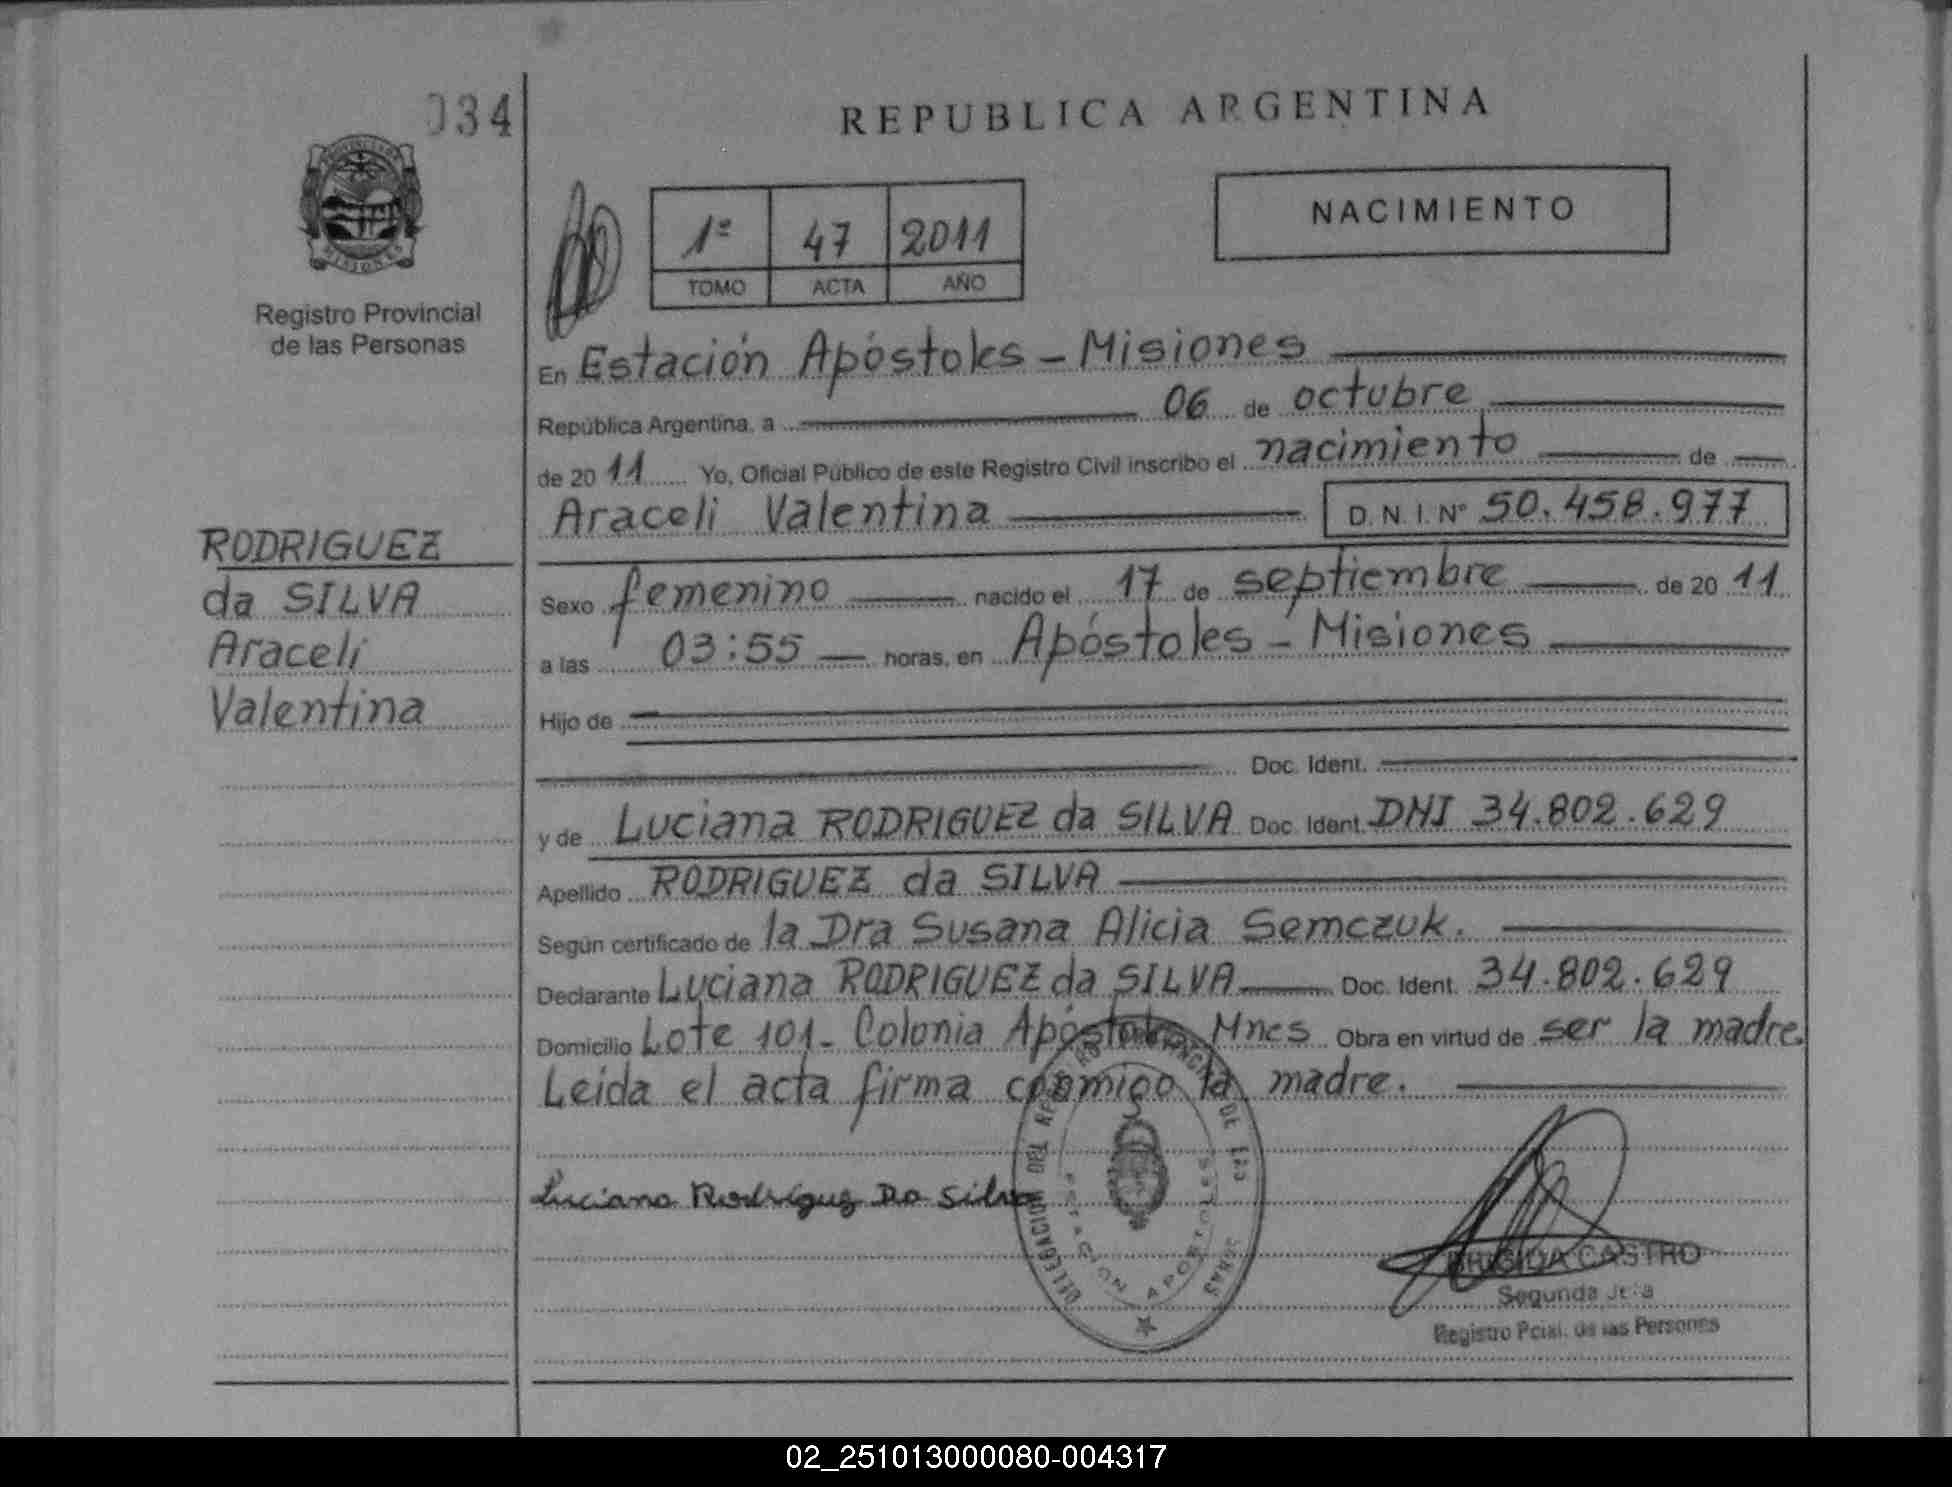 034
REPUBLICA ARGENTINA
PROVINCIA DE
MISIONES
Registro Provincial
de las Personas
1º 47 2011
TOMO ACTA AÑO
NACIMIENTO
En Estación Apóstoles - Misiones
República Argentina, a 06 de octubre
de 20 11 Yo, Oficial Público de este Registro Civil inscribo el nacimiento de
Araceli Valentina D.N.I. Nº 50.458.977
RODRIGUEZ
da SILVA
Araceli
Valentina
Sexo femenino nacido el 17 de septiembre de 20 11
a las 03:55 horas, en Apóstoles - Misiones
Hijo de
Doc. Ident.
y de Luciana RODRIGUEZ da SILVA Doc. Ident. DNI 34.802.629
Apellido RODRIGUEZ da SILVA
Según certificado de la Dra Susana Alicia Semczuk.
Declarante Luciana RODRIGUEZ da SILVA Doc. Ident. 34.802.629
Domicilio Lote 101- Colonia Apóstoles Mnes Obra en virtud de ser la madre.
Leida el acta firma conmigo la madre.
Luciana Rodriguez Da Silva
DELEGACION DEL
ESTACIÓN APOSTOLES
BRIGIDA CASTRO
Segunda Jefa
Registro Pcial. de las Personas
02_251013000080-004317